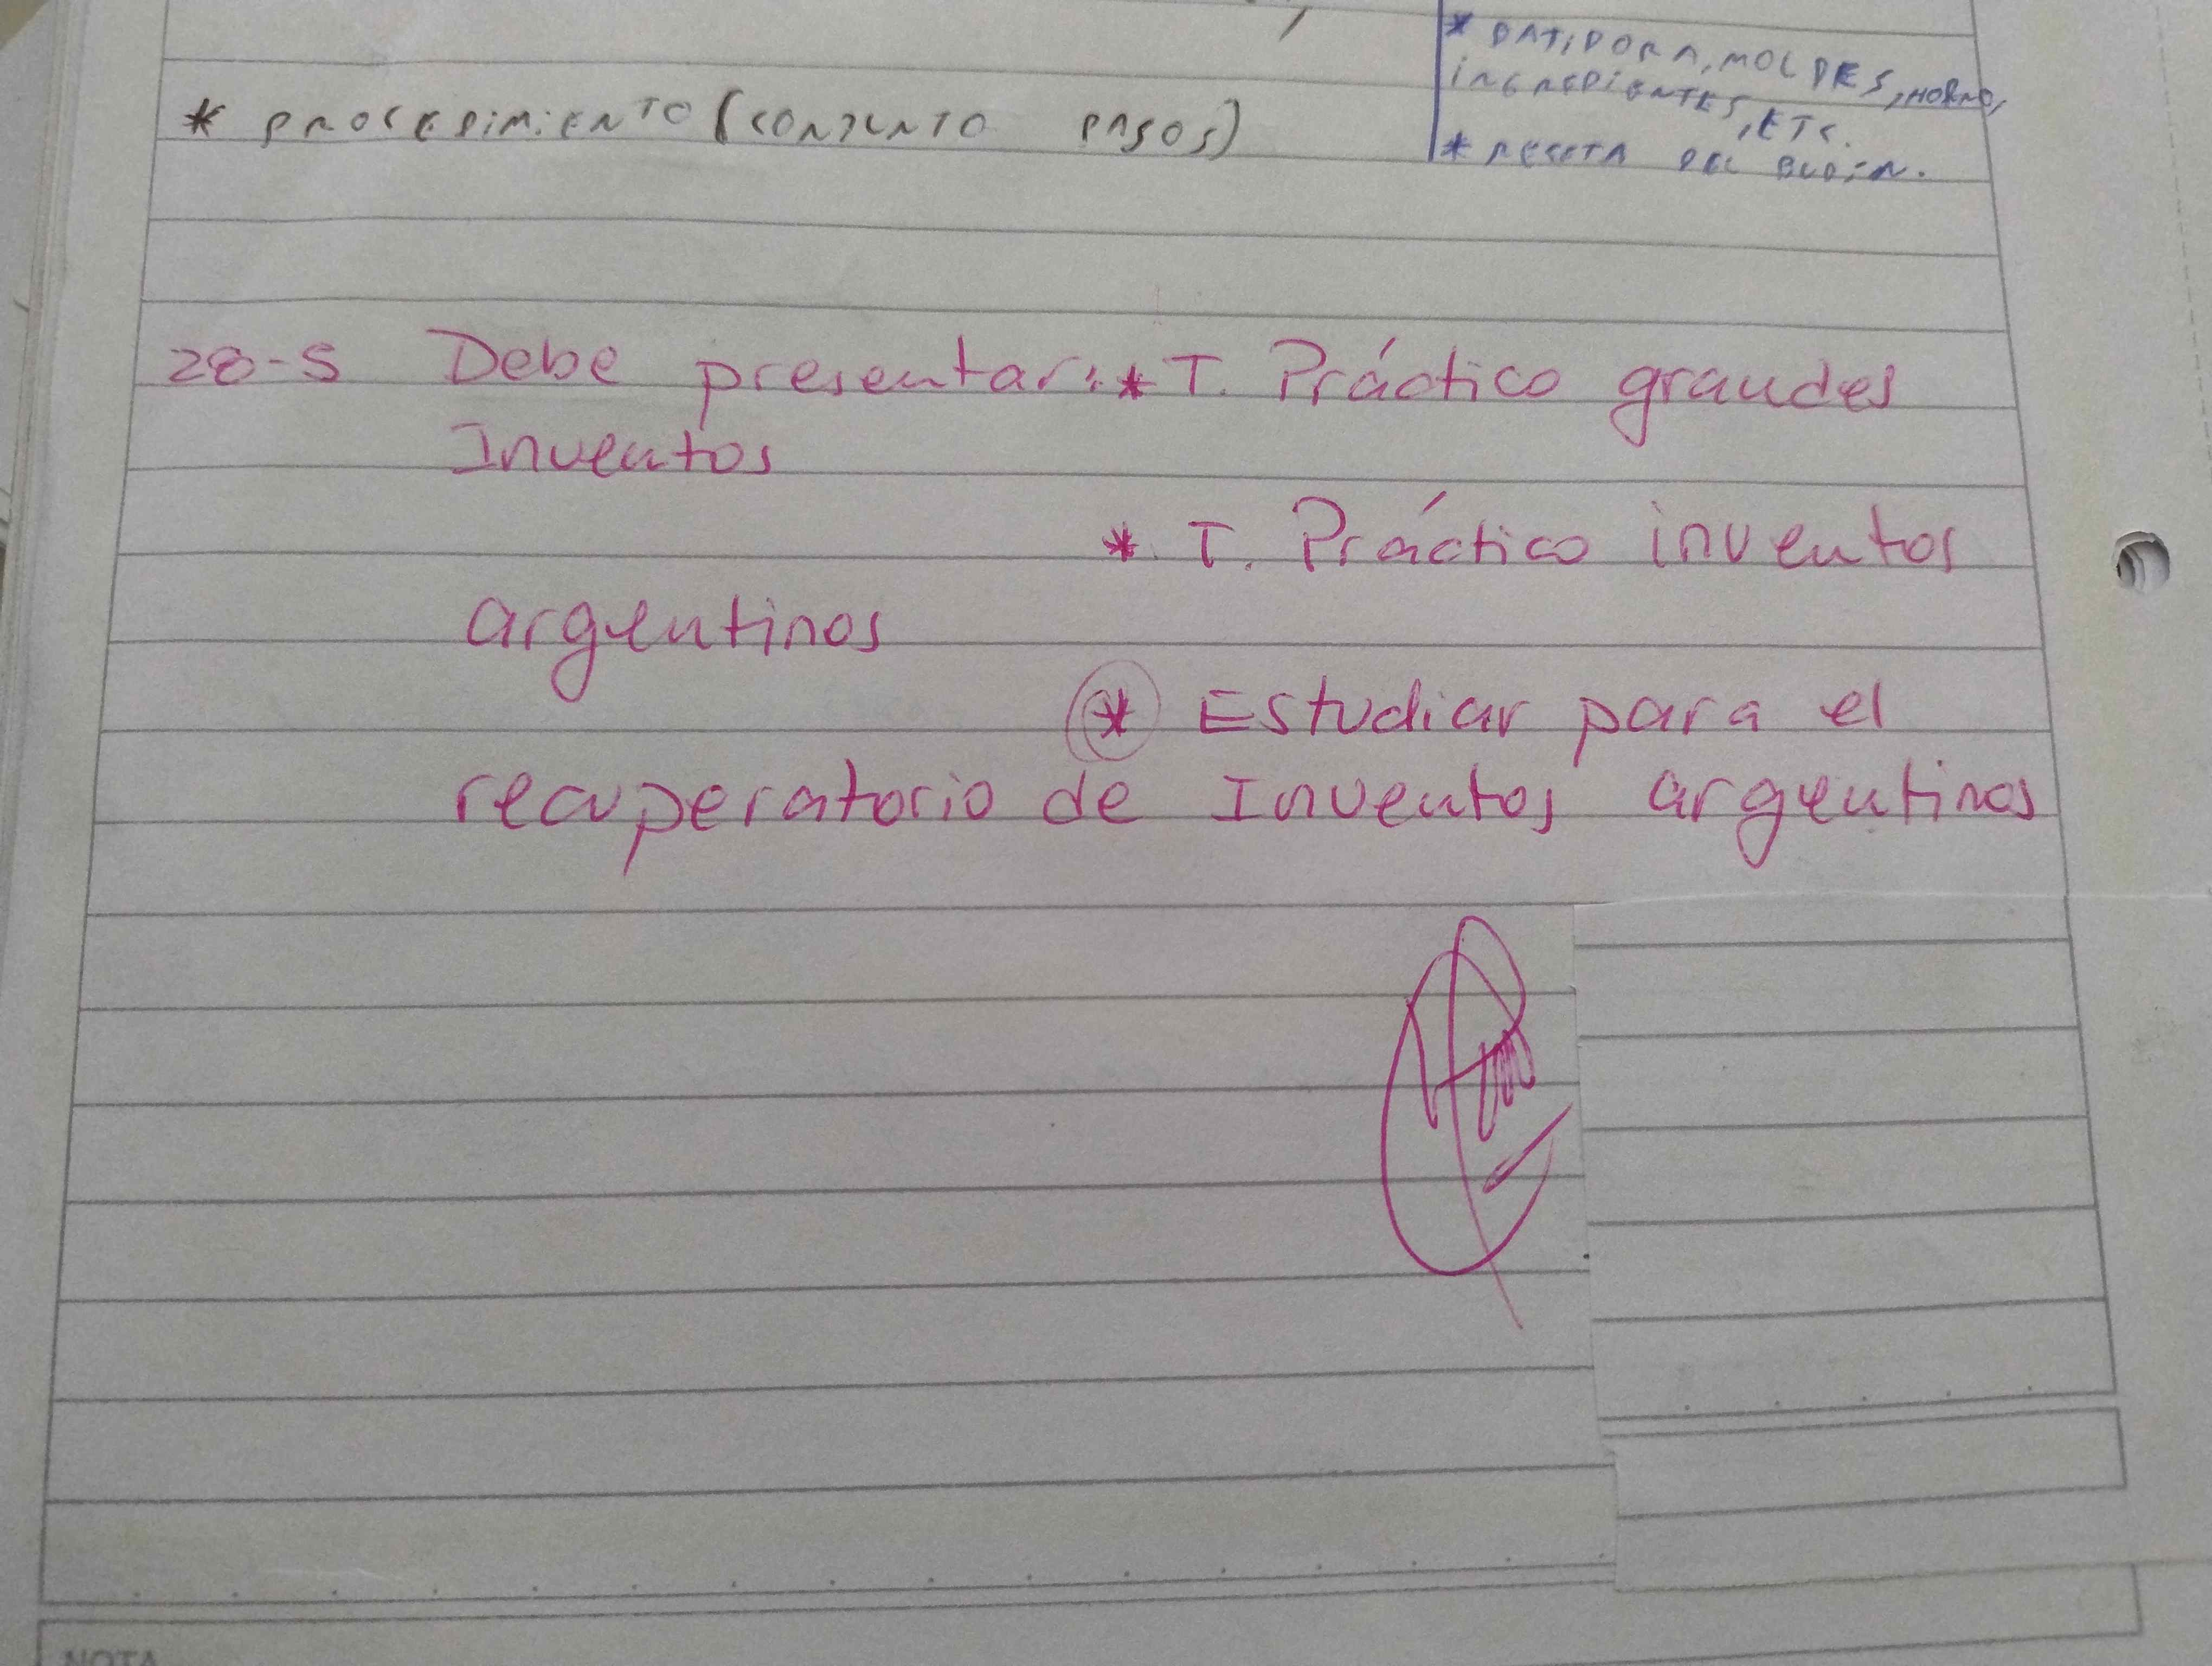 * BATIDORA, MOLDES, HORNO,
INGREDIENTES, ETC.
* RESETA DEL BUDIN.
* PROCEDIMIENTO (CONJUNTO PASOS)
28-5 Debe presentar: * T. Práctico grandes
Inventos
* T. Práctico inventos
argentinos
* Estudiar para el
recuperatorio de Inventos argentinos
NOTA